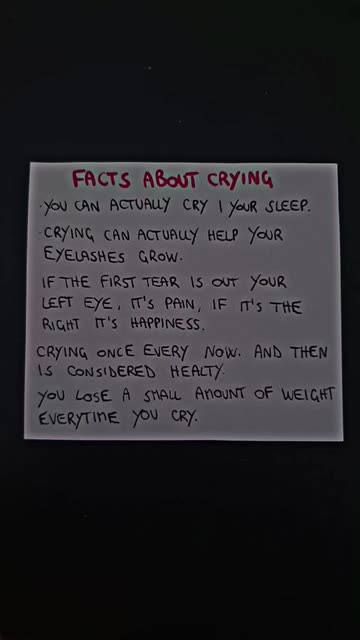 FACTS ABOUT CRYING
·YOU CAN ACTUALLY CRY I YOUR SLEEP.
·CRYING CAN ACTUALLY HELP YOUR
EYELASHES GROW.
IF THE FIRST TEAR IS OUT YOUR
LEFT EYE, IT'S PAIN, IF IT'S THE
RIGHT IT'S HAPPINESS.
CRYING ONCE EVERY NOW. AND THEN
IS CONSIDERED HEALTY.
YOU LOSE A SMALL AMOUNT OF WEIGHT
EVERYTIME YOU CRY.